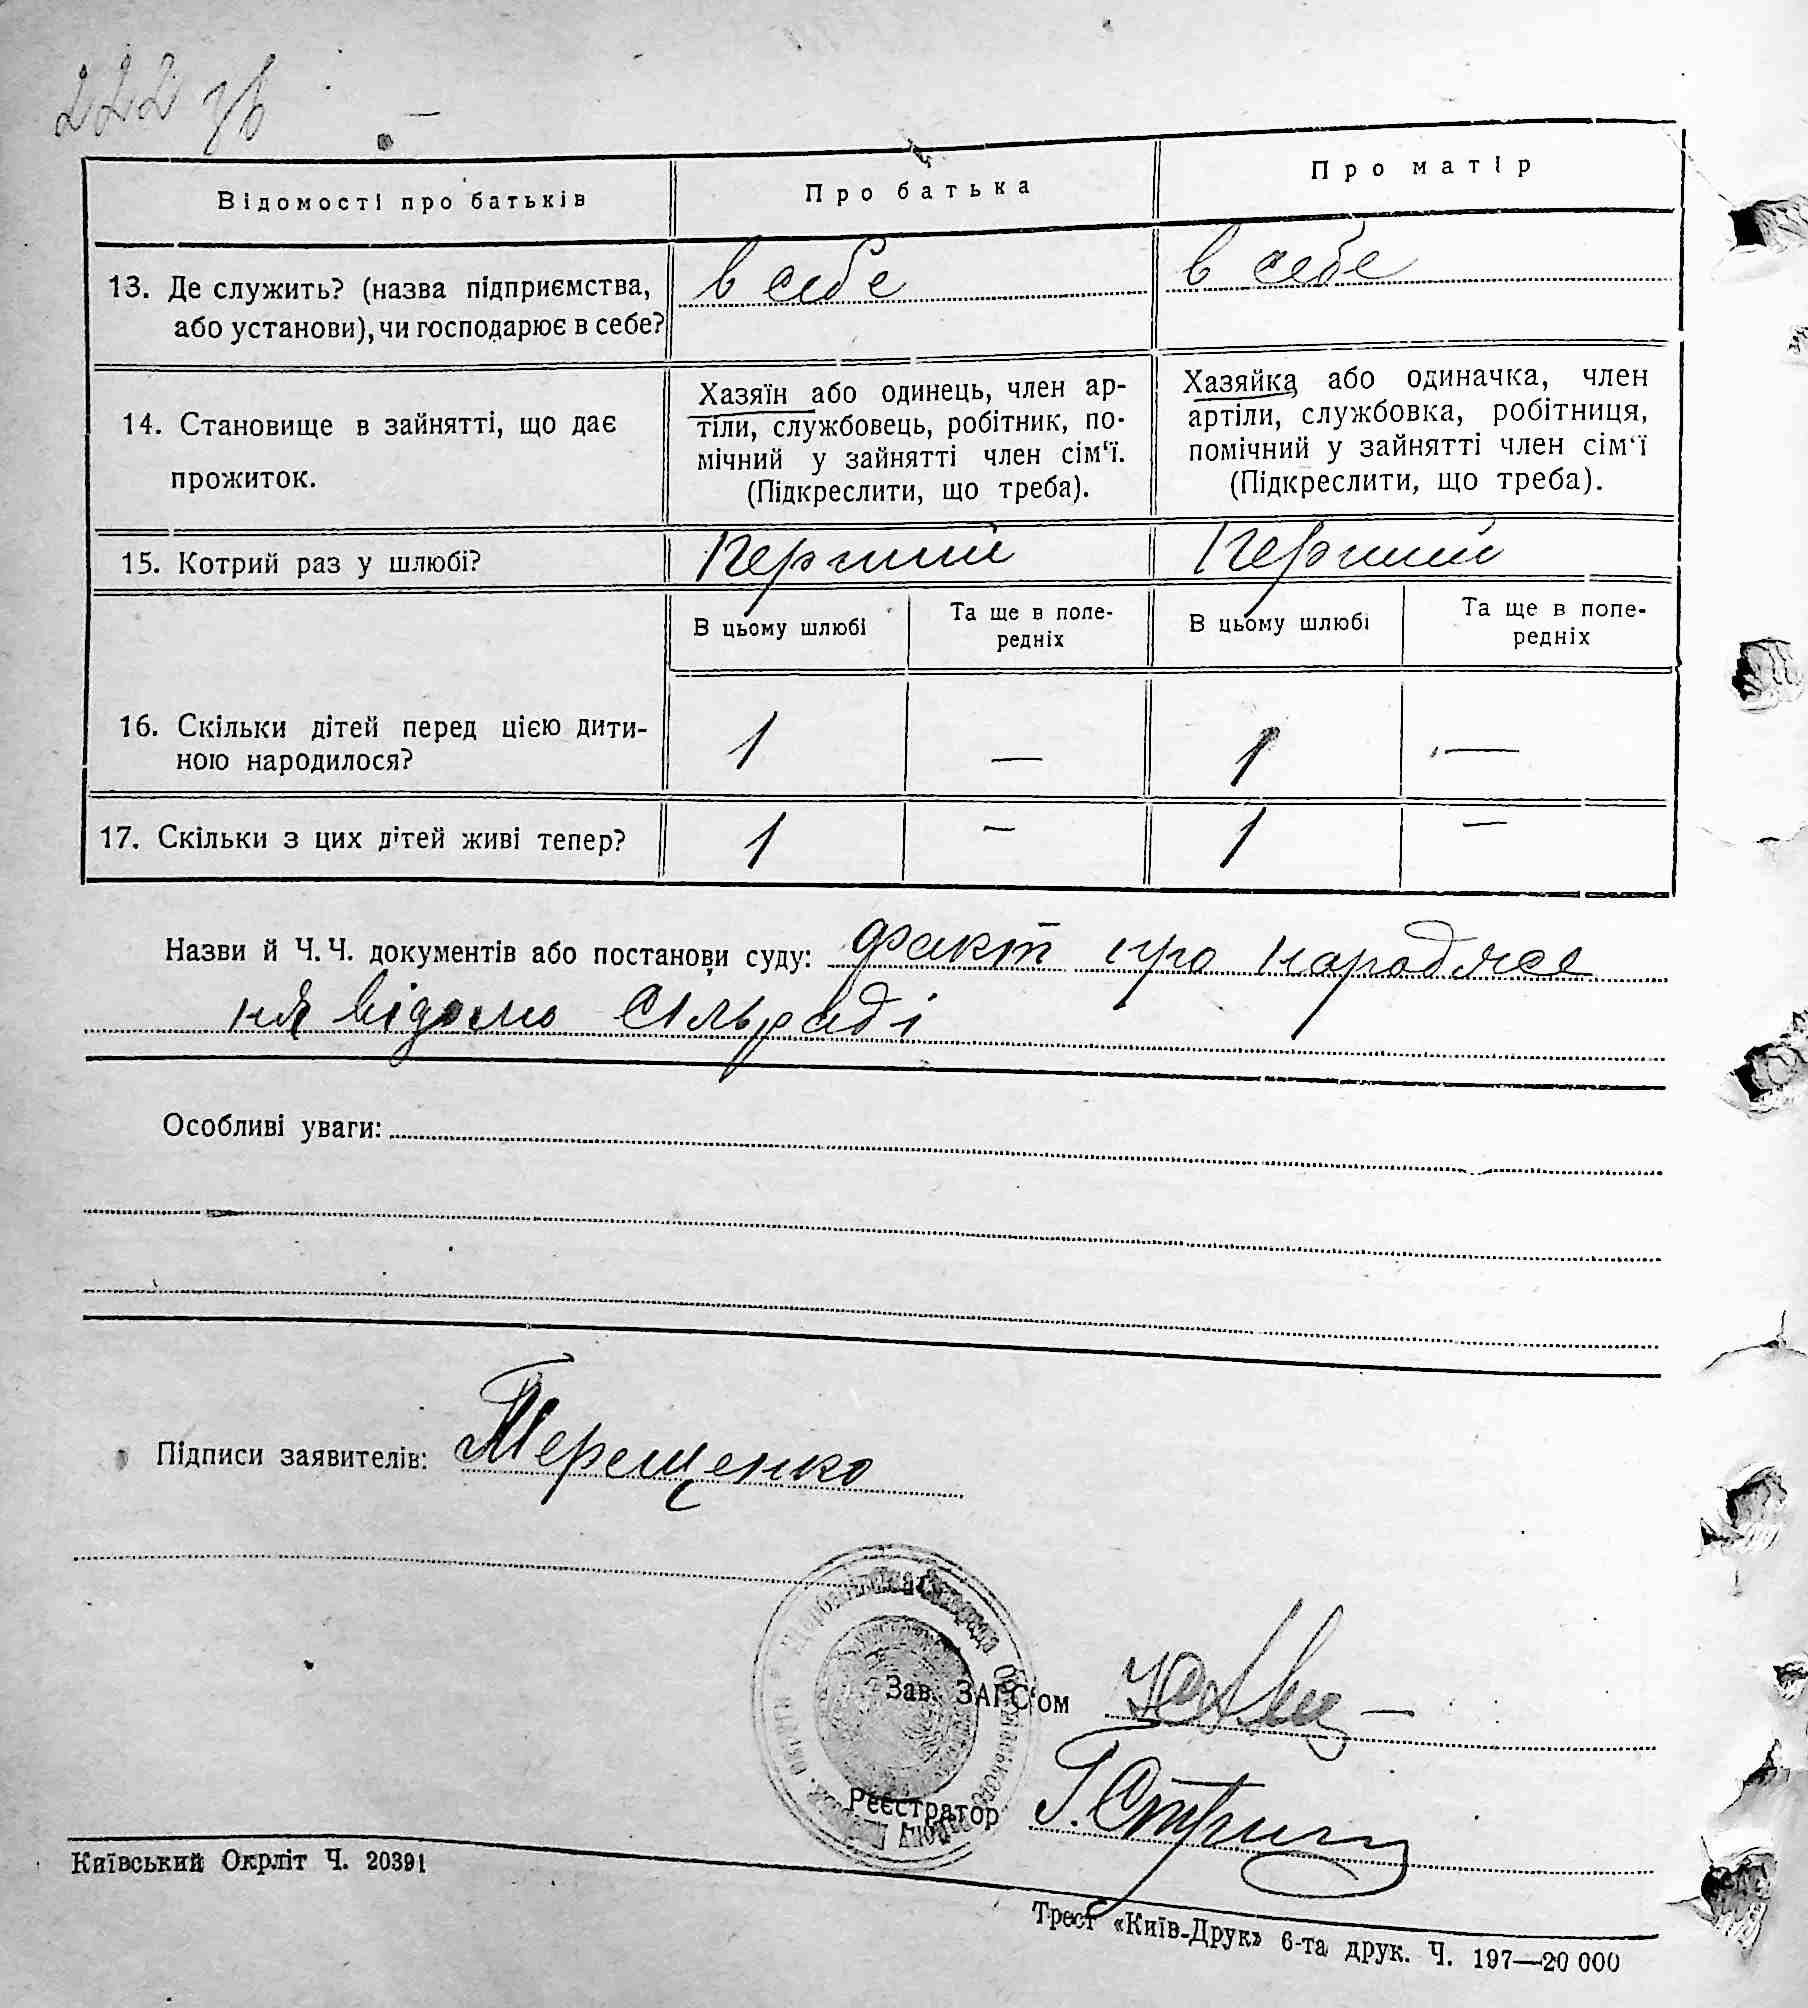 222 зв
Відомості про батьків
Про батька
Про матір
13. Де служить? (назва підприємства,
або установи), чи господарює в себе?
в себе
в себе
14. Становище в зайнятті, що дає
прожиток.
Хазяїн або одинець, член ар-
тіли, службовець, робітник, по-
мічний у зайнятті член сім‘ї.
(Підкреслити, що треба).
Хазяйка або одиначка, член
артіли, службовка, робітниця,
помічний у зайнятті член сім‘ї
(Підкреслити, що треба).
15. Котрий раз у шлюбі?
Перший
Перший
В цьому шлюбі
Та ще в попе-
редніх
В цьому шлюбі
Та ще в попе-
редніх
16. Скільки дітей перед цією дити-
ною народилося?
1
—
1
—
17. Скільки з цих дітей живі тепер?
1
—
1
—
Назви й Ч. Ч. документів або постанови суду: факт про народжен
ня відомо сільраді
Особливі уваги:
Підписи заявителів: Терещенко
Зав. ЗАГС‘ом
Реєстратор
Київський Окрліт Ч. 20391
Трест «Київ-Друк» 6-та друк. Ч. 197—20 000